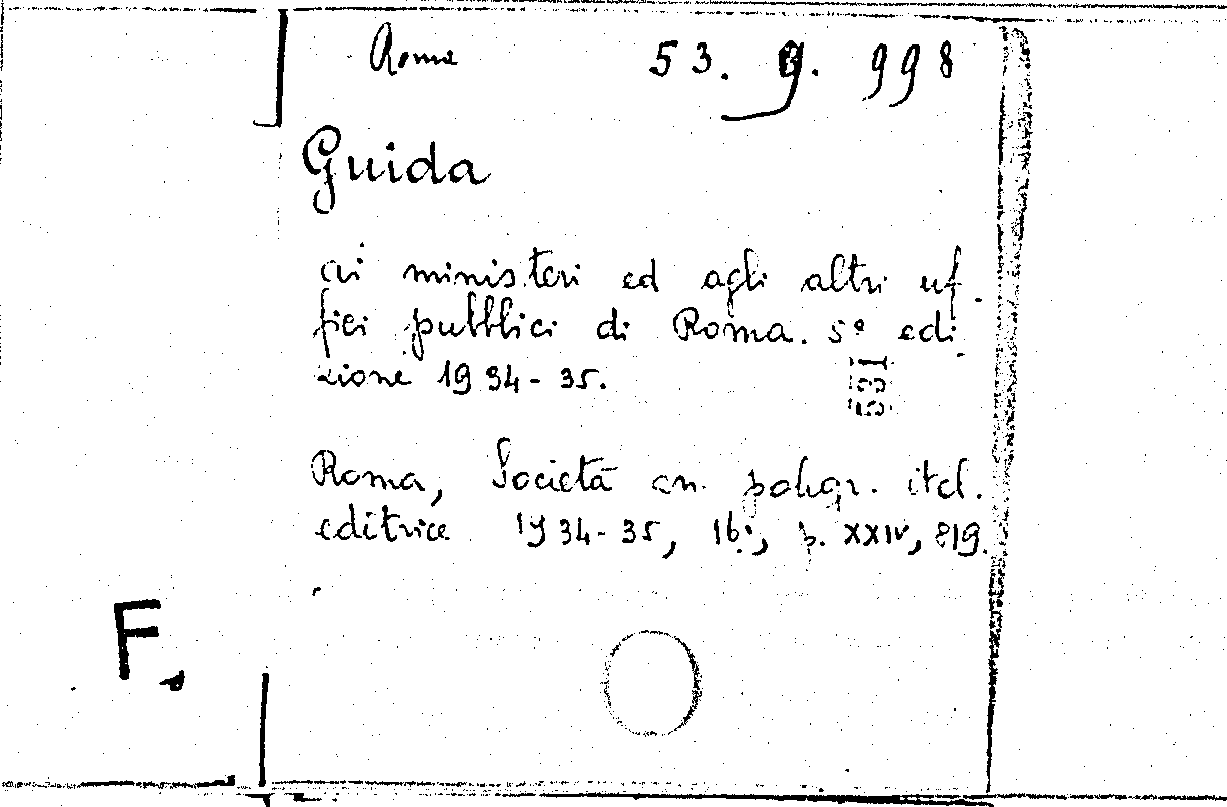 Roma 53. 9. 998
Guida
ai ministeri ed agli altri uf-
fici pubblici di Roma. 5ª edi-
zione 1934-35.
Roma, Società an. poligr. ital.
editrice 1934-35, 16°, p. XXIV, 819.
F.